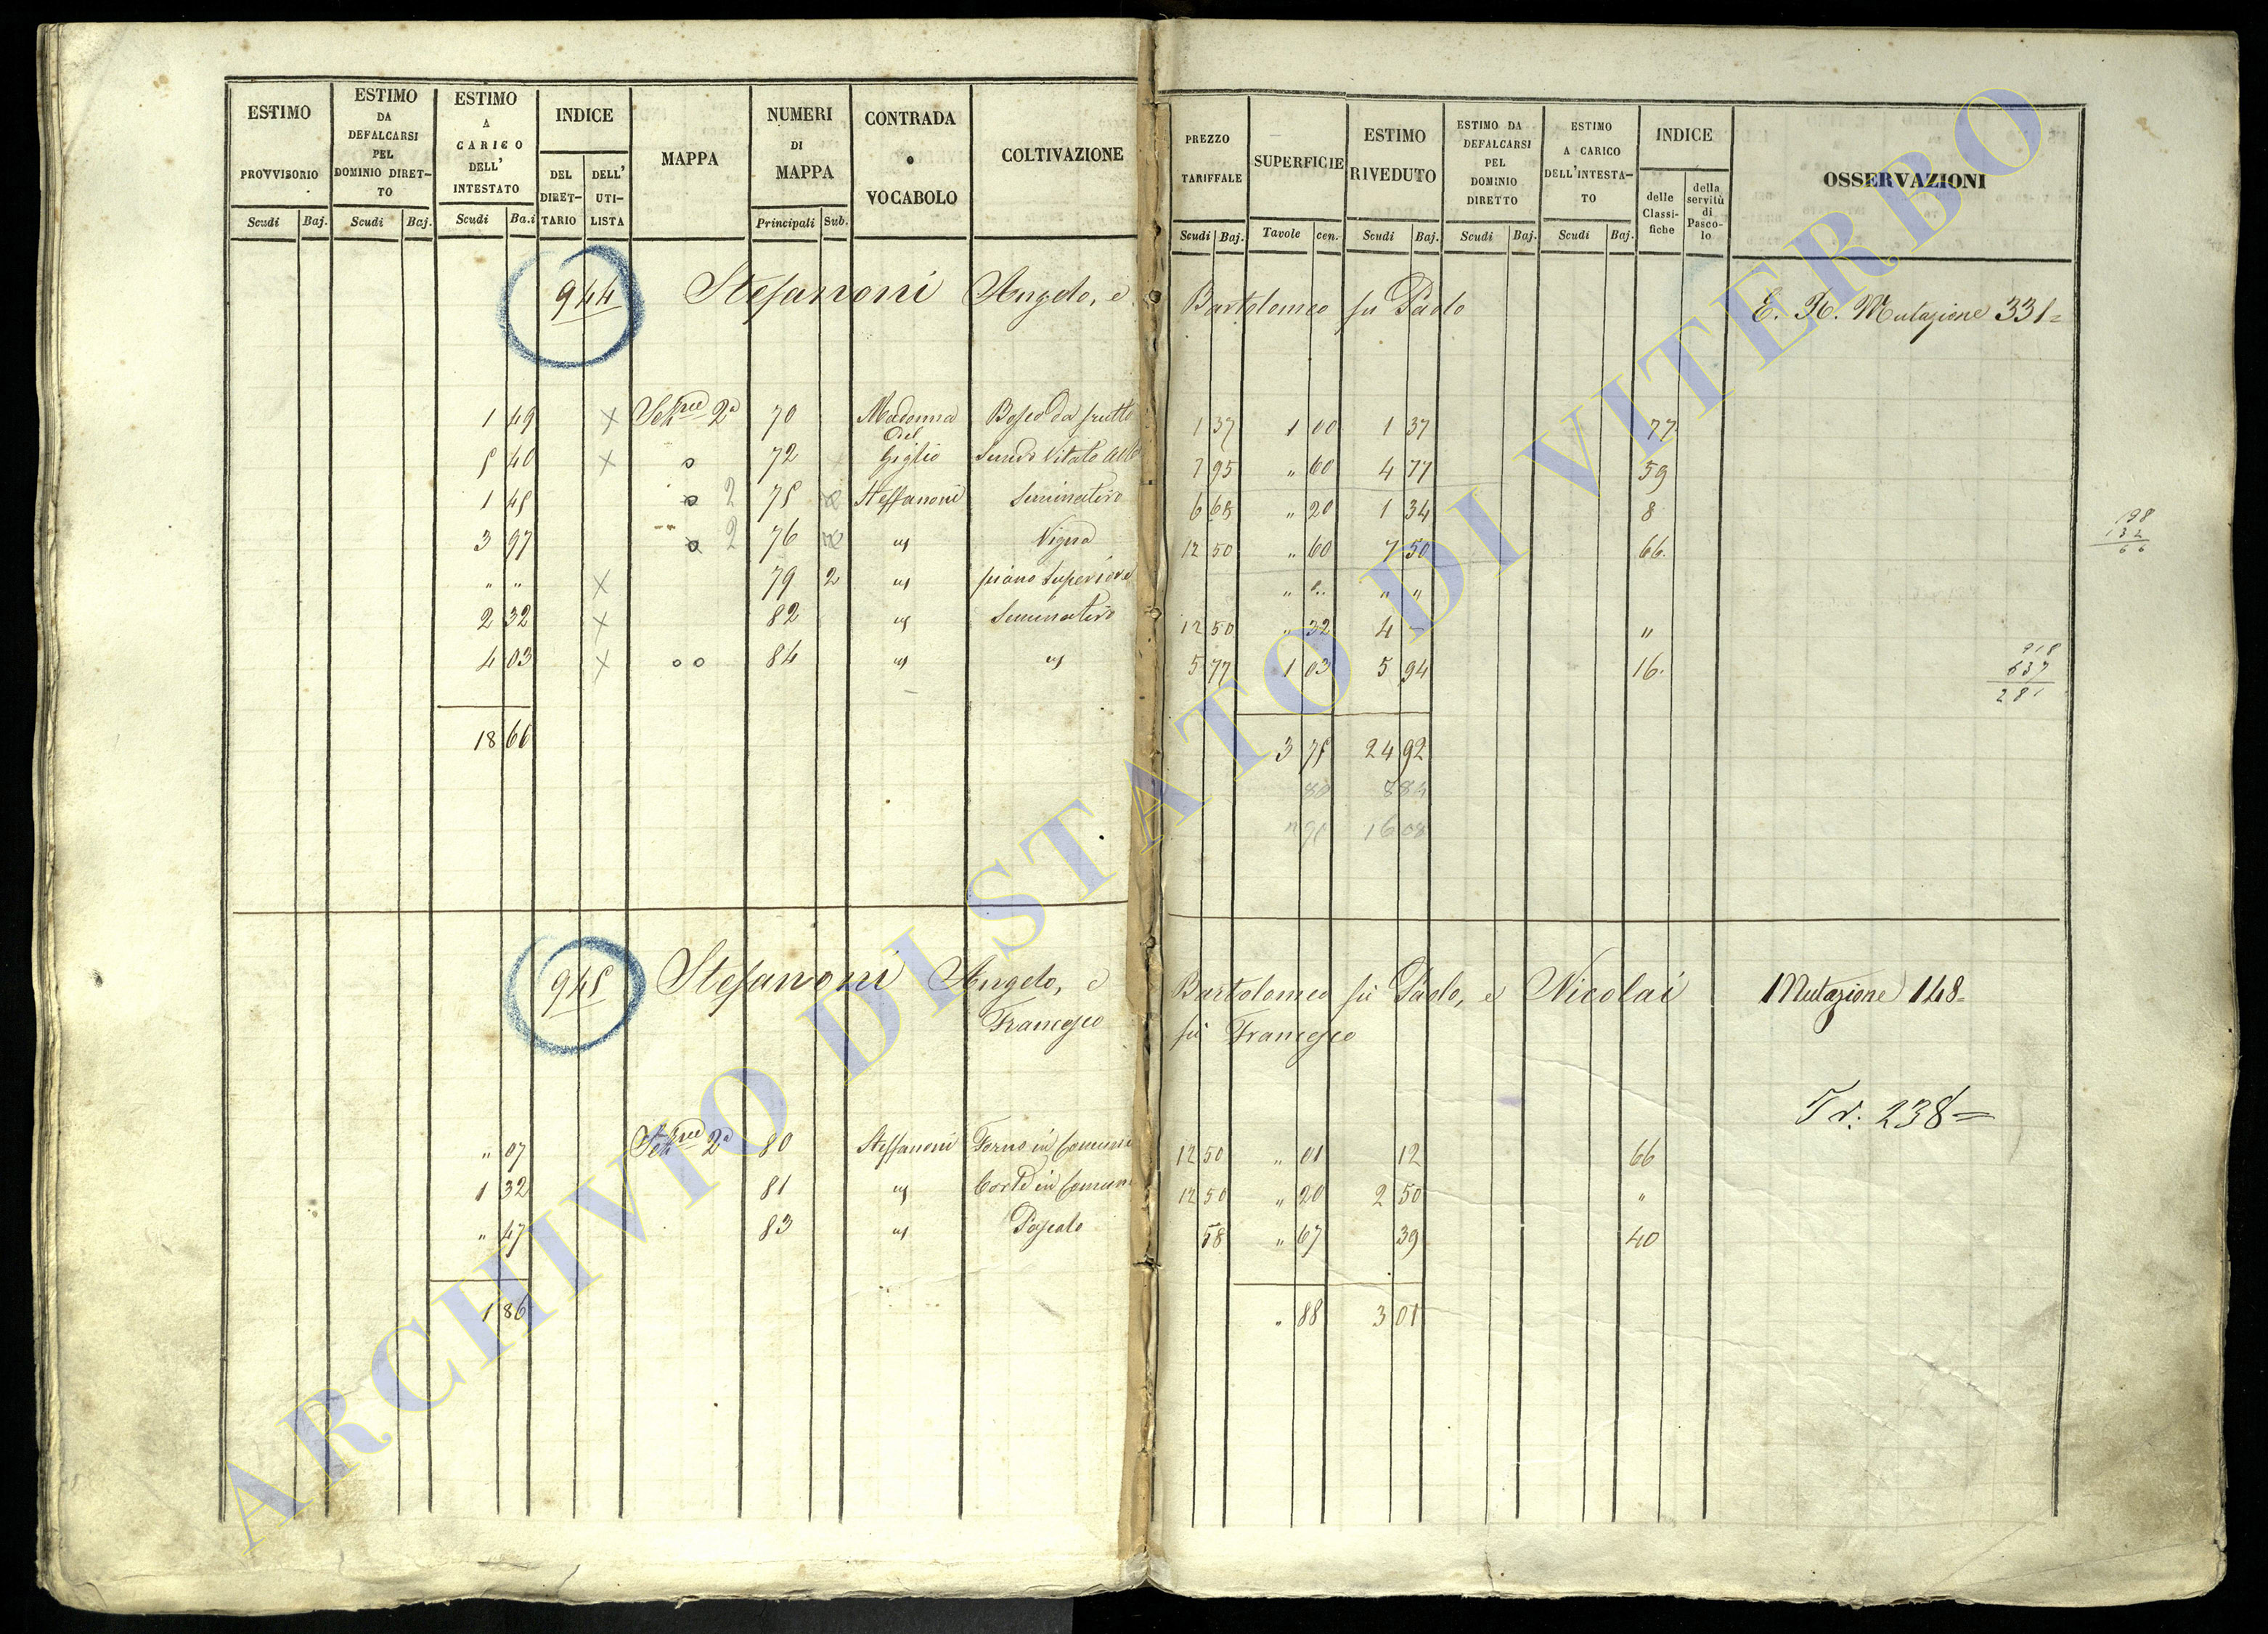 ESTIMO PROVVISORIO
ESTIMO DA DEFALCARSI PEL DOMINIO DIRET-TO
ESTIMO A CARICO DELL' INTESTATO
INDICE
DEL DIRET-TARIO
DELL' UTI-LISTA
MAPPA
NUMERI DI MAPPA
CONTRADA o VOCABOLO
COLTIVAZIONE
PREZZO TARIFFALE
SUPERFICIE
ESTIMO RIVEDUTO
ESTIMO DA DEFALCARSI PEL DOMINIO DIRETTO
ESTIMO A CARICO DELL'INTESTA-TO
INDICE
delle Classi-fiche
della servitù di Pasco-lo
OSSERVAZIONI
Scudi Baj. Scudi Baj. Scudi Ba.i Principali Sub. Scudi Baj. Tavole cen. Scudi Baj. Scudi Baj. Scudi Baj.
944 Stefanoni Angelo, e Bartolomeo fu Paolo E. R. Mutazione 331=
1 49 X 2a 70 Madonna Bosco da frutto 1 37 1 00 1 37 77
del
5 40 X o 72 Giglio Vitato 7 95 " 60 4 77 59
1 45 o 2 75 Steffanoni Seminativo 6 68 " 20 1 34 8
3 97 o 2 76 " Vigna 12 50 " 60 7 50 66.
" " X 79 2 " piano Superiore " " "
2 32 X 82 " Seminativo 12 50 " 32 4 - "
4 03 X o o 84 " " 5 77 1 03 5 94 16.
18 66 3 75 24 92
80 8 84
16 08
198
132
66
918
637
281
945 Stefanoni Angelo, e Bartolomeo fu Paolo, e Nicolai Mutazione 148=
Francesco fu Francesco
Tr: 238=
" 07 2a 80 Steffanoni Forno in Comune 12 50 " 01 12 66
1 32 81 " Corte in Comune 12 50 " 20 2 50 "
" 47 83 " Pascolo 58 " 67 39 40
1 86 " 88 3 01
ARCHIVIO DI STATO DI VITERBO